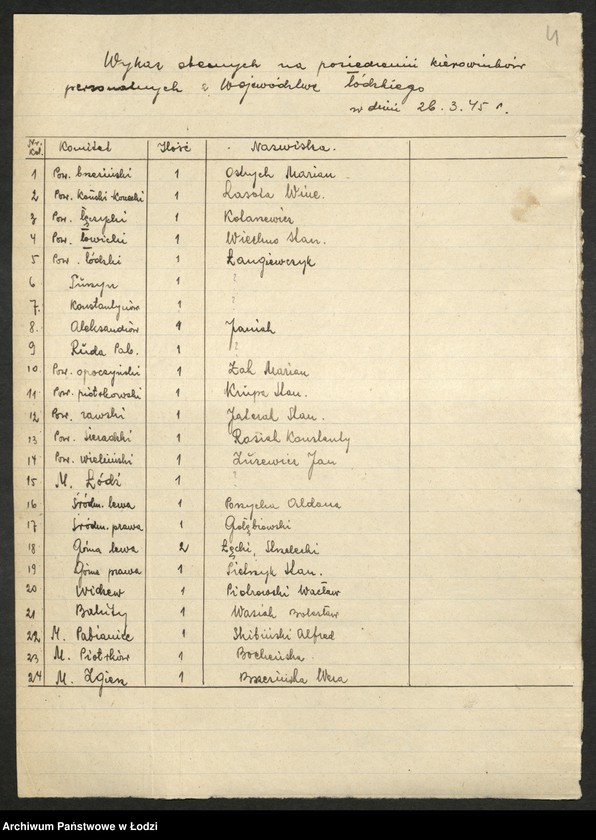 4
Wykaz obecnych na posiedzeniu kierowników
personalnych z Województwa łódzkiego
w dniu 26.3.45 r.
Nr. kol. Komitet Ilość Nazwiska.
1 Pow. brzeziński 1 Ostrych Marian
2 Pow. Koński 1 Lasota Winc.
3 Pow. Łęczycki 1 Kolasiewicz
4 Pow. Łowicki 1 Stan.
5 Pow. łódzki 1
6 Tuszyn 1 ?
7. Konstantynów 1 ?
8. Aleksandrów 1 Janiak
9 Ruda Pab. 1 ?
10. Pow. opoczyński 1 Żak Marian
11. Pow. piotrkowski 1 Krupa Stan.
12 Pow. rawski 1 Stan.
13 Pow. Sieradzki 1 Rosiak Konstanty
14 Pow. wieluński 1 Jan
15 M. Łódź 1 ?
16 Śródm. lewa 1 Aldona
17 Śródm. prawa 1 Gołębiowski
18 Górna lewa 2 Łęcki, Strzelecki
19 Górna prawa 1 Pietrzyk Stan.
20 Widzew 1 Piotrowski Wacław
21 Bałuty 1 Wasiak Bolesław
22 M. Pabianice 1 Skibiński Alfred
23 M. Piotrków 1 Bocheńska
24 M. Zgierz 1 Brzezińska Wera
Archiwum Państwowe w Łodzi